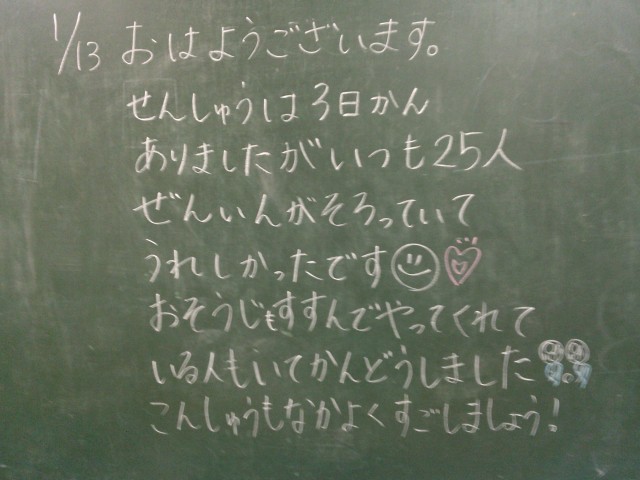 1/13 おはようございます。
せんしゅうは3日かん
ありましたがいつも25人
ぜんいんがそろっていて
うれしかったです
おそうじもすすんでやってくれて
いる人もいてかんどうしました
こんしゅうもなかよくすごしましょう!